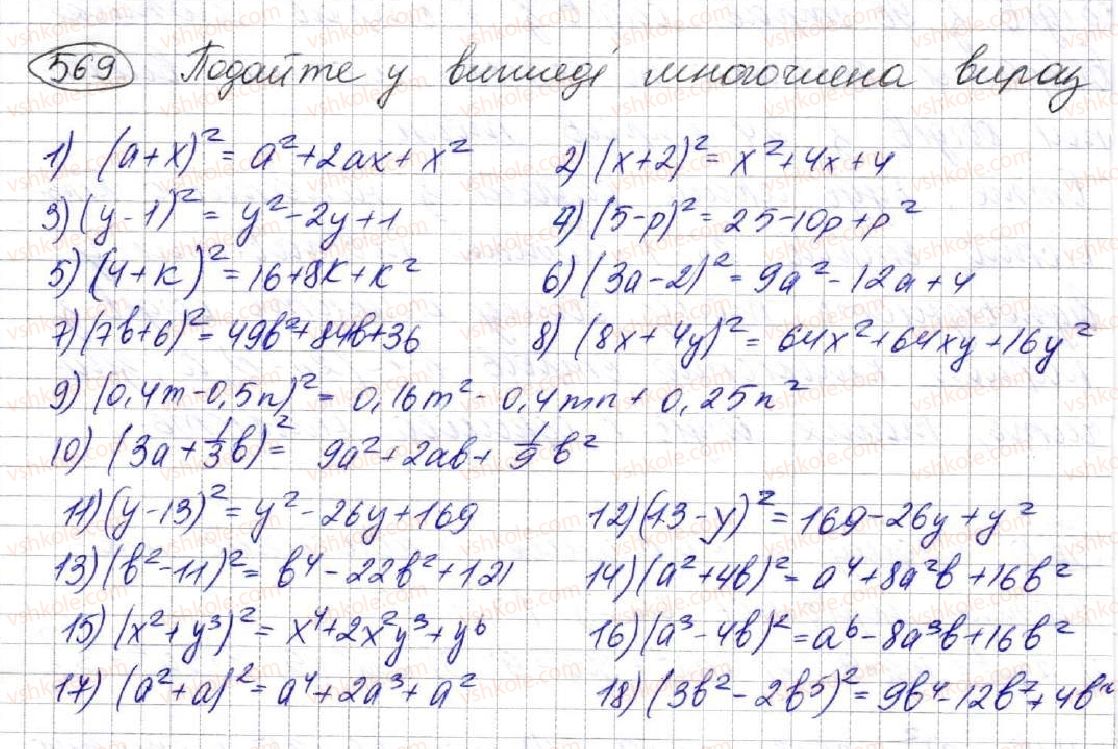 569 Подайте у вигляді многочлена вираз
1) (a+x)² = a²+2ax+x² 2) (x+2)² = x²+4x+4
3) (y-1)² = y²-2y+1 4) (5-p)² = 25-10p+p²
5) (4+k)² = 16+8k+k² 6) (3a-2)² = 9a²-12a+4
7) (7b+6)² = 49b²+84b+36 8) (8x+4y)² = 64x²+64xy+16y²
9) (0,4m-0,5n)² = 0,16m²-0,4mn+0,25n²
10) (3a+1/3b)² = 9a²+2ab+1/9b²
11) (y-13)² = y²-26y+169 12) (13-y)² = 169-26y+y²
13) (b²-11)² = b⁴-22b²+121 14) (a²+4b)² = a⁴+8a²b+16b²
15) (x²+y³)² = x⁴+2x²y³+y⁶ 16) (a³-4b)² = a⁶-8a³b+16b²
17) (a²+a)² = a⁴+2a³+a² 18) (3b²-2b⁵)² = 9b⁴-12b⁷+4b